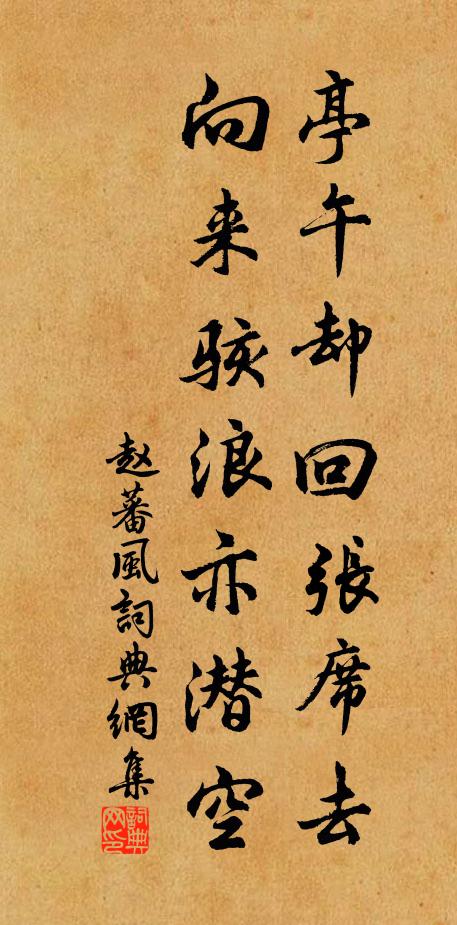 亭午却回張席去
向来骇浪亦潜空
赵蕃風詞典網集
詞典网印